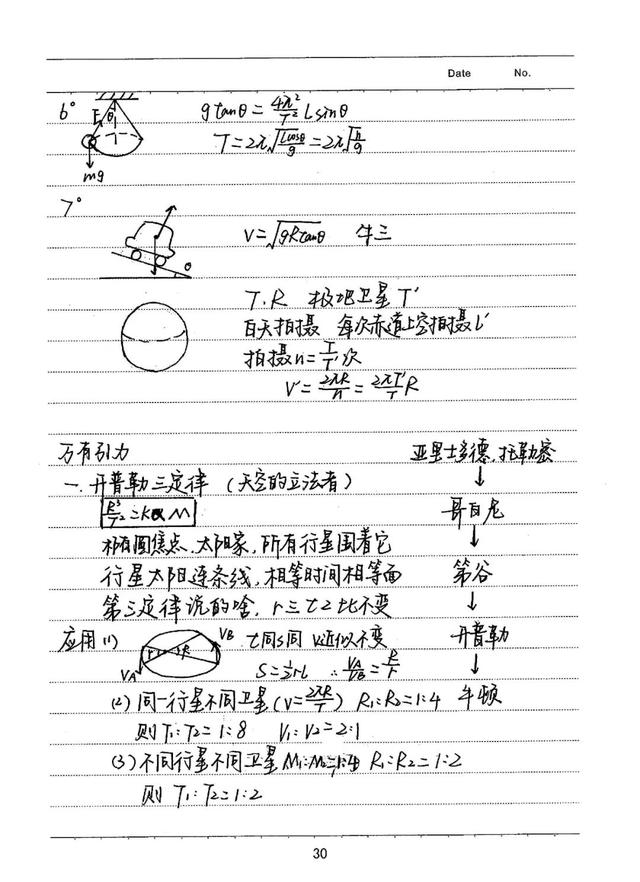 Date No.
6° F θ mg
g tanθ = 4π²/T² L sinθ
T = 2π√(Lcosθ/g) = 2π√(h/g)
7° θ
V = √(gR tanθ) 牛三
T.R 极地卫星 T'
白天拍摄 每次赤道上空拍摄 L'
拍摄 n = T/T' 次
V' = 2πR/n = 2πT'/T R
万有引力 亚里士多德.托勒密
一.开普勒三定律 (天空的立法者) ↓
R³/T² = K ∝ M 哥白尼
↓
椭圆焦点.太阳家,所有行星围着它
行星太阳连条线,相等时间相等面 第谷
第三定律说的啥, r三t2比不变 ↓
应用(1) VA r R VB t同S同 V近似不变 开普勒
S = ½rL ∴ VA/VB = R/r ↓
(2) 同一行星不同卫星 (V = 2πR/T) R₁:R₂ = 1:4 牛顿
则 T₁:T₂ = 1:8 V₁:V₂ = 2:1
(3) 不同行星不同卫星 M₁:M₂ = 1:4 R₁:R₂ = 1:2
则 T₁:T₂ = 1:2
30